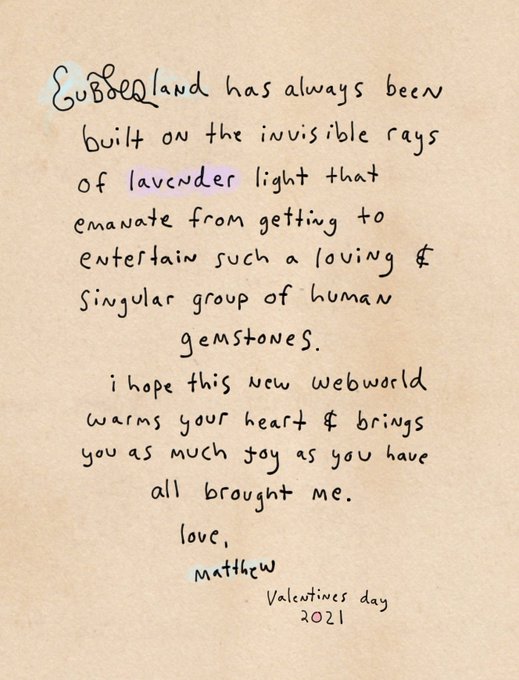 GuBleRland has always been
built on the invisible rays
of lavender light that
emanate from getting to
entertain such a loving &
singular group of human
gemstones.
i hope this new webworld
warms your heart & brings
you as much joy as you have
all brought me.
love,
matthew
Valentines day
2021